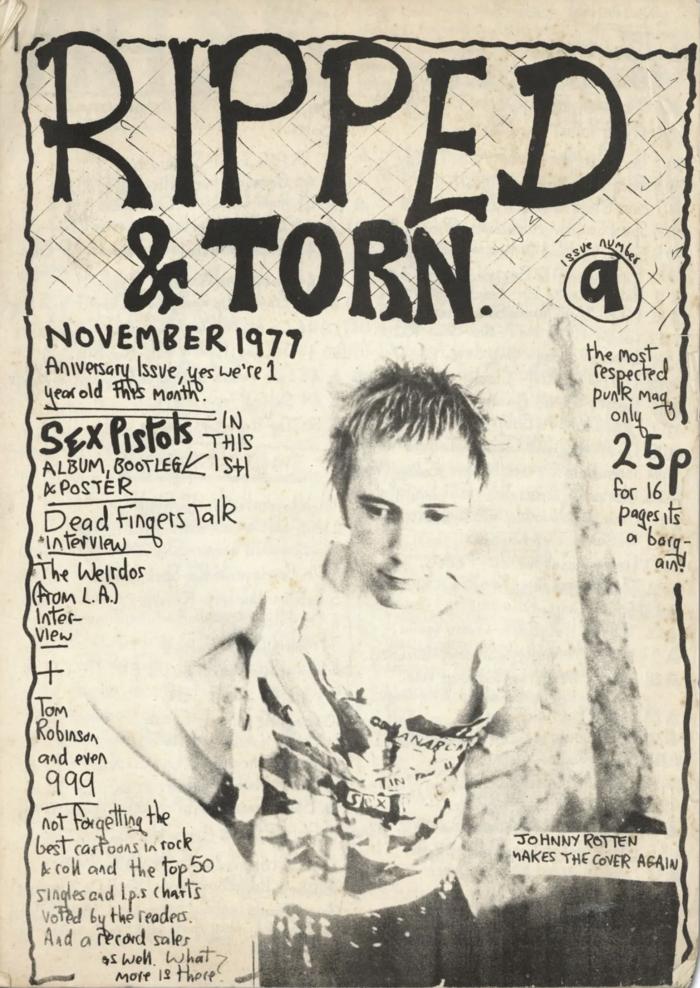 RIPPED
& TORN.
issue number
9
NOVEMBER 1977
Aniversary Issue, yes we're 1
year old this month.
SEX PISTOLS IN
THIS
ALBUM, BOOTLEG ISH
& POSTER
Dead Fingers Talk
*interview
The Weirdos
(from L.A.)
Inter-
view
+
Tom
Robinson
and even
999
not forgetting the
best cartoons in rock
& roll and the top 50
singles and l.p.s charts
voted by the readers.
And a record sales
as well. What
more is there?
the most
respected
punk mag,
only
25p
for 16
pages its
a barg-
ain!
ANARCHY
IN THE U
SEX
JOHNNY ROTTEN
MAKES THE COVER AGAIN